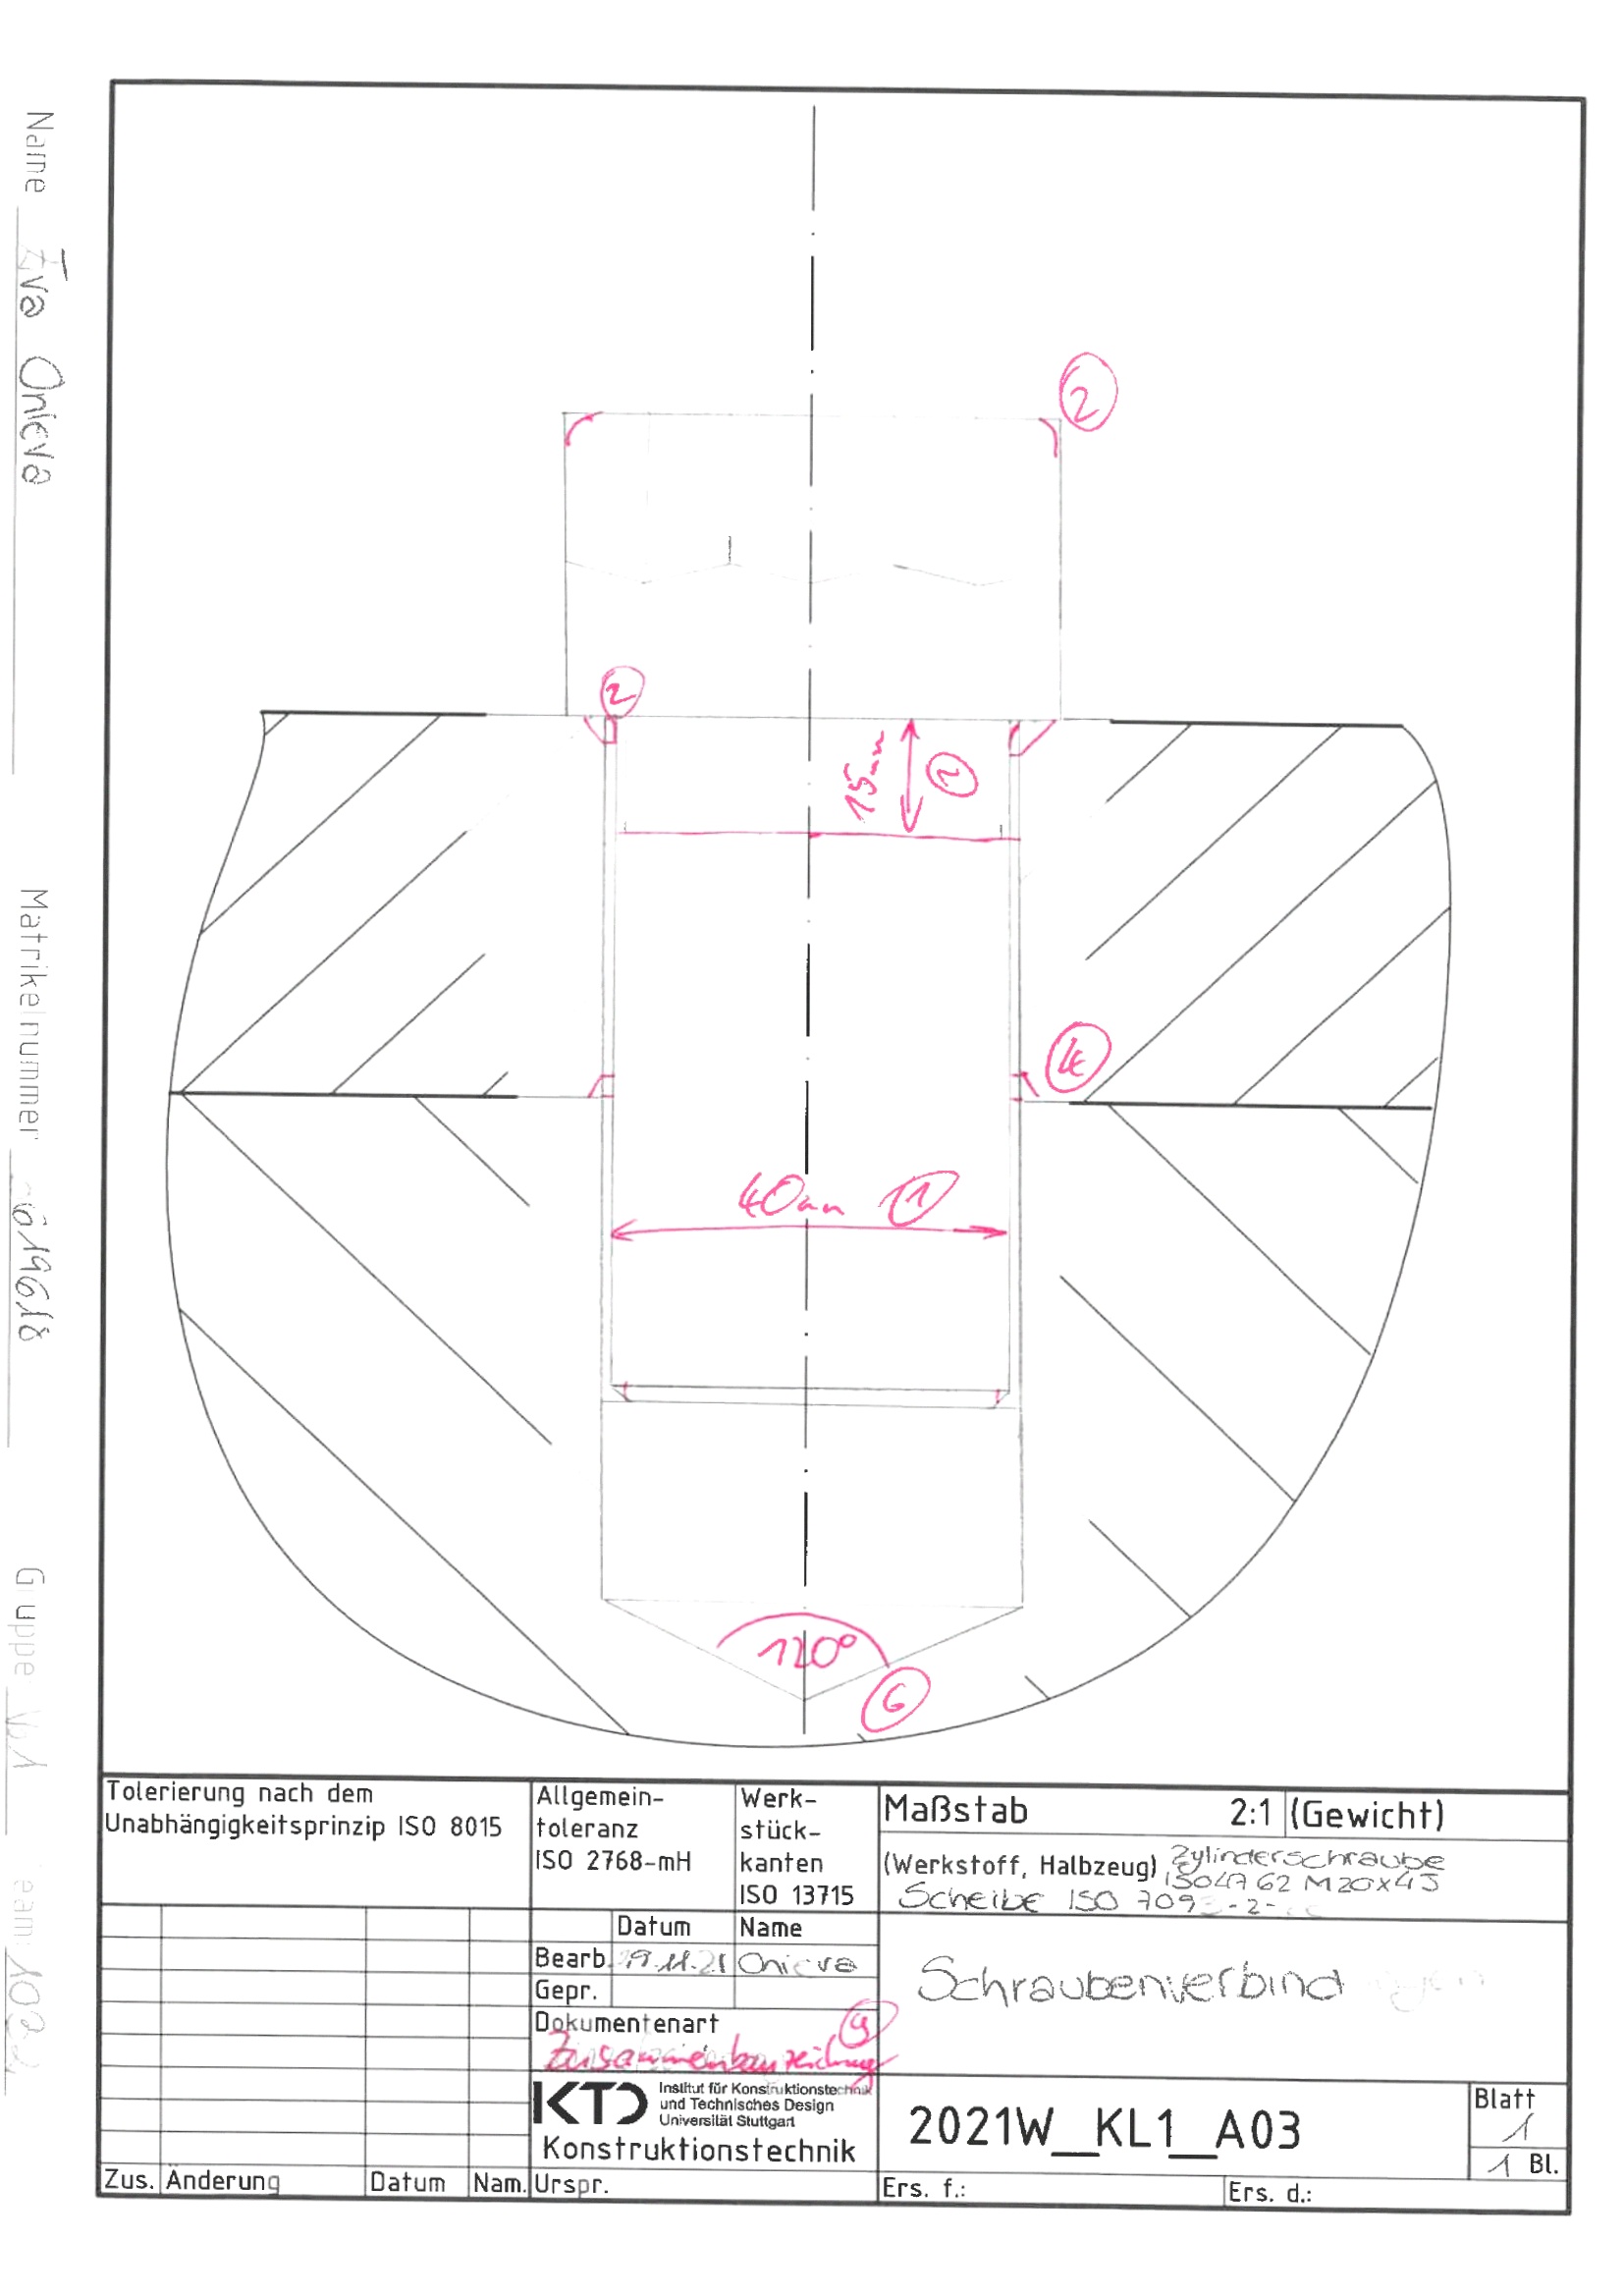 Name Eva Onieva
Matrikelnummer
Gruppe
2
2
15mm 2
4
40mm 1
120°
6
Tolerierung nach dem
Unabhängigkeitsprinzip ISO 8015
Allgemein-
toleranz
ISO 2768-mH
Werk-
stück-
kanten
ISO 13715
Maßstab 2:1 (Gewicht)
(Werkstoff, Halbzeug) Zylinderschraube
ISO 4762 M20x45
Scheibe ISO
Datum Name
Bearb. 19.11.21 Onieva
Gepr.
Dokumentenart
Zusammenbauzeichnung 9
Schraubenverbind
KTD Institut für Konstruktionstechnik
und Technisches Design
Universität Stuttgart
Konstruktionstechnik
2021W_KL1_A03
Blatt
1
1 Bl.
Zus. Änderung Datum Nam. Urspr.
Ers. f.: Ers. d.: